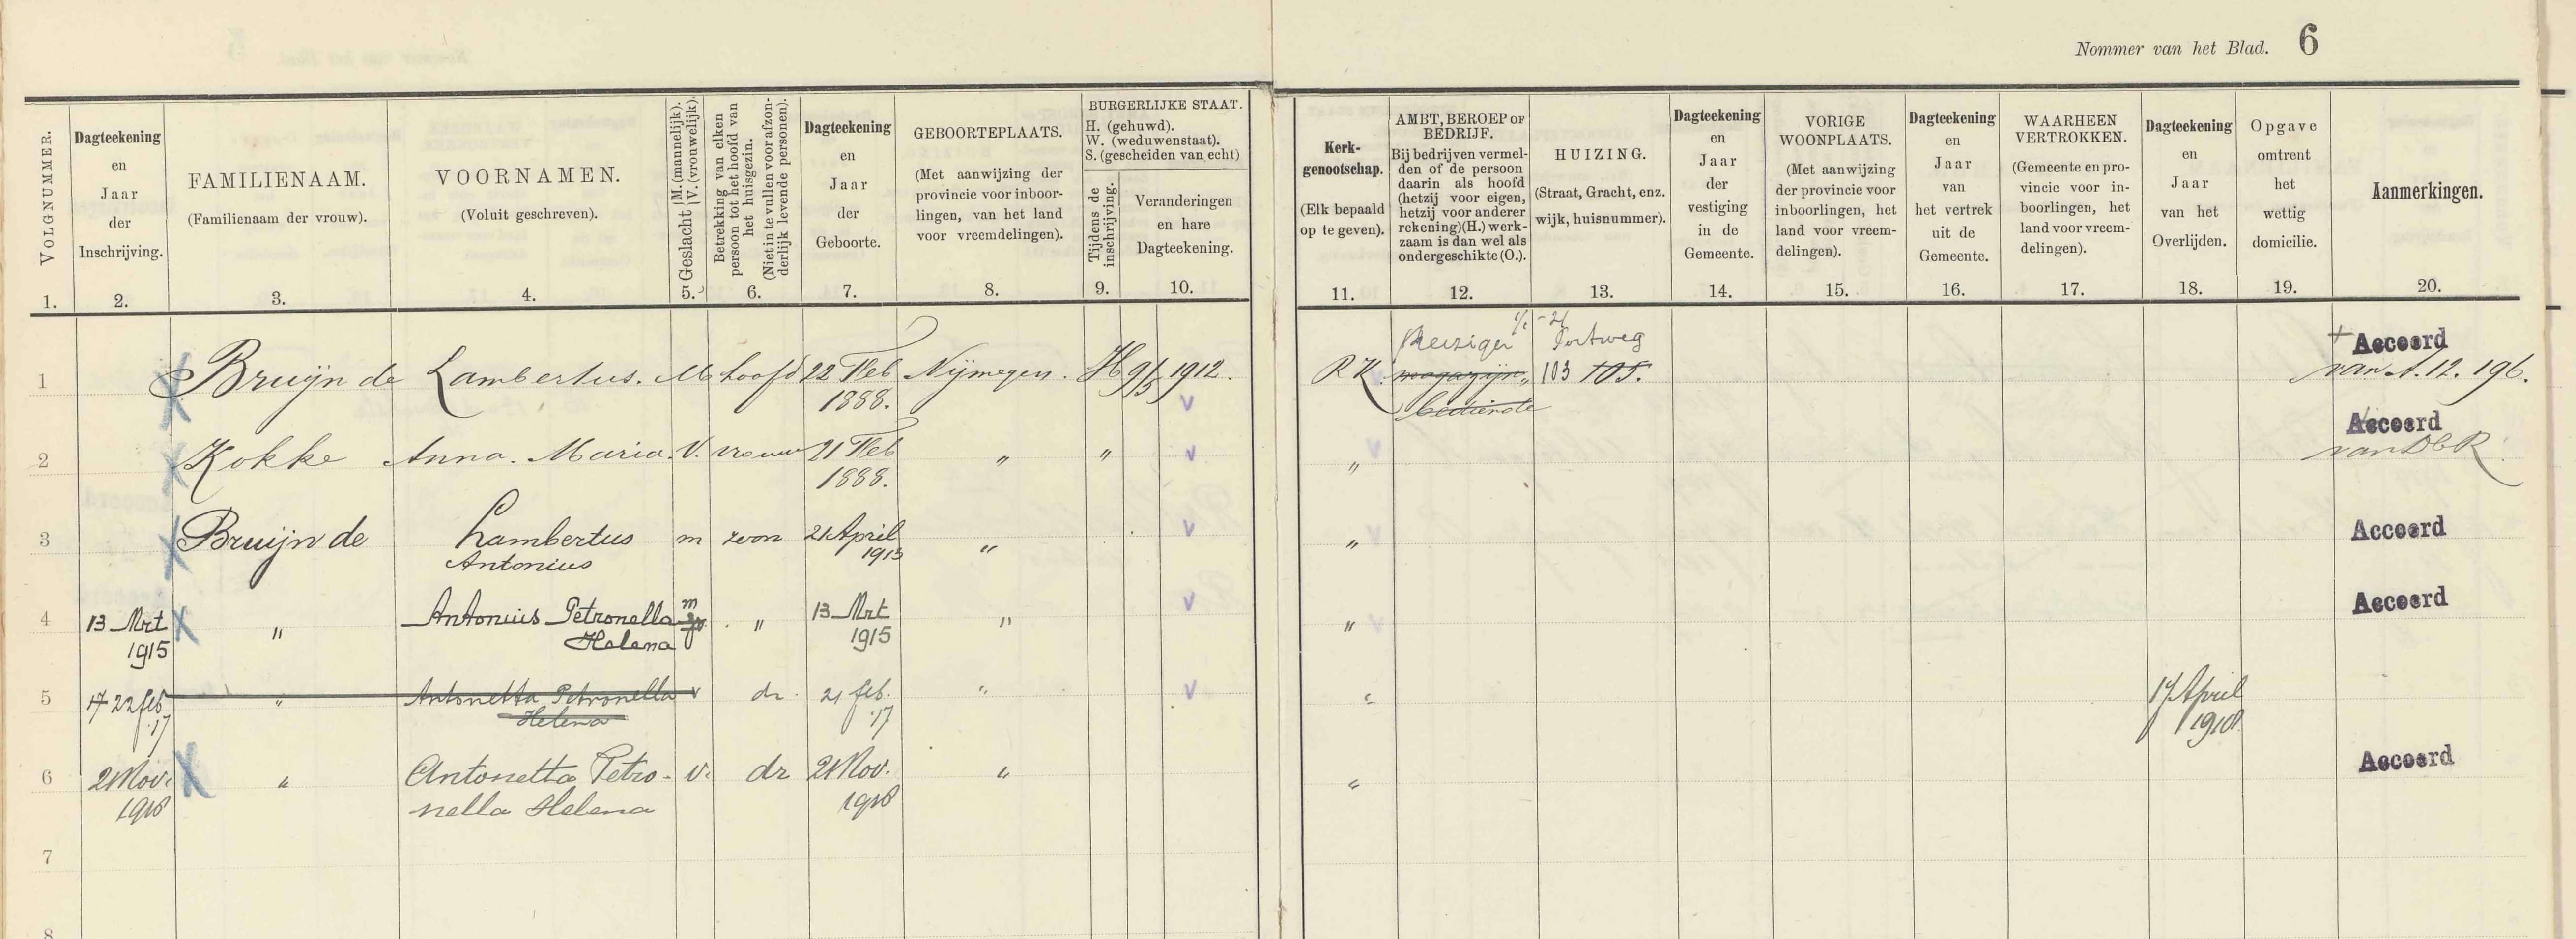 Nommer van het Blad. 6
VOLGNUMMER.
Dagteekening
en
Jaar
der
Inschrijving.
FAMILIENAAM.
(Familienaam der vrouw).
VOORNAMEN.
(Voluit geschreven).
Geslacht {M. (mannelijk). V. (vrouwelijk).
Betrekking van elken
persoon tot het hoofd van
het huisgezin.
(Niet in te vullen voor afzon-
derlijk levende personen).
Dagteekening
en
Jaar
der
Geboorte.
GEBOORTEPLAATS.
(Met aanwijzing der
provincie voor inboor-
lingen, van het land
voor vreemdelingen).
BURGERLIJKE STAAT.
H. (gehuwd).
W. (weduwenstaat).
S. (gescheiden van echt)
Tijdens de
inschrijving.
Veranderingen
en hare
Dagteekening.
Kerk-
genootschap.
(Elk bepaald
op te geven).
AMBT, BEROEP OF
BEDRIJF.
Bij bedrijven vermel-
den of de persoon
daarin als hoofd
(hetzij voor eigen,
hetzij voor anderer
rekening)(H.) werk-
zaam is dan wel als
ondergeschikte (O.).
HUIZING.
(Straat, Gracht, enz.
wijk, huisnummer).
Dagteekening
en
Jaar
der
vestiging
in de
Gemeente.
VORIGE
WOONPLAATS.
(Met aanwijzing
der provincie voor
inboorlingen, het
land voor vreem-
delingen).
Dagteekening
en
Jaar
van
het vertrek
uit de
Gemeente.
WAARHEEN
VERTROKKEN.
(Gemeente en pro-
vincie voor in-
boorlingen, het
land voor vreem-
delingen).
Dagteekening
en
Jaar
van het
Overlijden.
Opgave
omtrent
het
wettig
domicilie.
Aanmerkingen.
1. 2. 3. 4. 5. 6. 7. 8. 9. 10. 11. 12. 13. 14. 15. 16. 17. 18. 19. 20.
Reiziger Fortweg Accoord
1 Bruijn de Lambertus. M hoofd 22 Feb Nijmegen. H 9/5 1912. RK. magazijn 103 105. van A. 12. 196.
1888. bediende
Accoord
2 Kokke Anna. Maria. V. vrouw 21 Feb " " " van DCR
1888.
3 Bruijn de Lambertus m zoon 21 April " " Accoord
Antonius 1913
4 13 Mrt " Antonius Petronella m " 13 Mrt " " Accoord
1915 Helena 1915
5 17 22 feb " Antonetta Petronella v dr. 21 feb. " " 17 April
17 Helena 17 1918
6 21 Nov. " Antonetta Petro- v. dr 21 Nov. " " Accoord
1918 nella Helena 1918
7
8